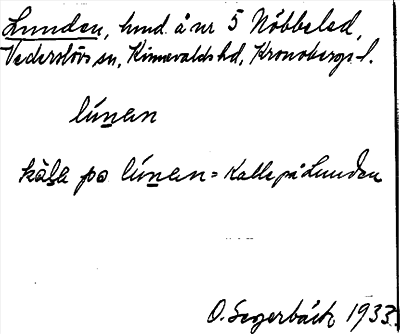 Lunden, hmd. å nr 5 Nöbbeled,
Vederslövs sn, Kinnevalds hd, Kronobergs l.
lúnan
kàla po lúnan = Kalle på Lunden
O. Segerbäck 1933.